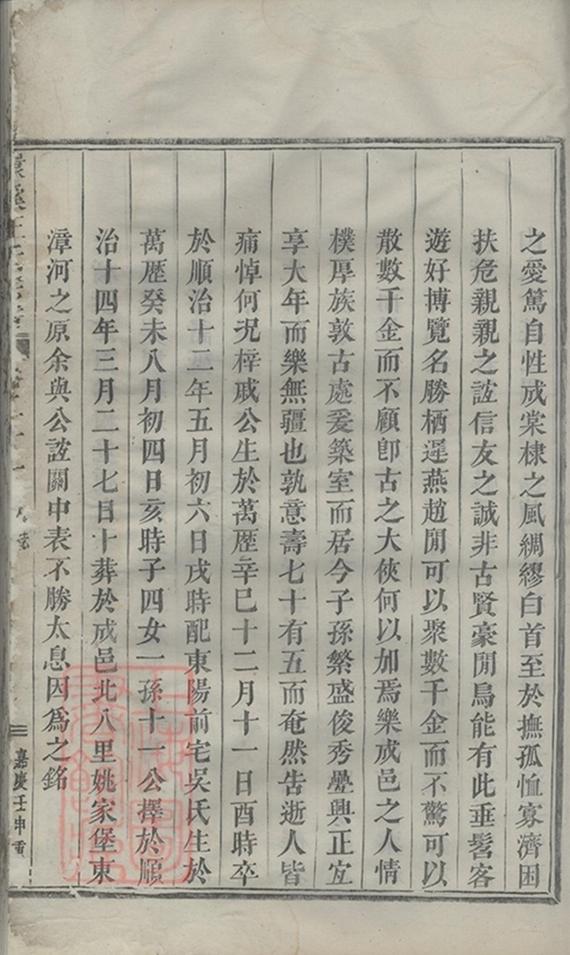 之愛篤自性成棠棣之風綢繆白首至於撫孤恤寡濟困
扶危親親之誼信友之誠非古賢豪閒烏能有此垂髫客
遊好博覽名勝栖遲燕趙閒可以聚數千金而不驚可以
散數千金而不顧卽古之大俠何以加焉樂成邑之人情
樸厚族敦古處爰築室而居今子孫繁盛俊秀疊興正宜
享大年而樂無疆也孰意壽七十有五而奄然告逝人皆
痛悼何况梓戚公生於萬歷辛巳十二月十一日酉時卒
於順治十二年五月初六日戌時配東陽前宅吳氏生於
萬歷癸未八月初四日亥時子四女一孫十一公擇於順
治十四年三月二十七日卜葬於成邑北八里姚家堡東
漳河之原余與公誼關中表不勝太息因爲之銘
嘉慶壬申重